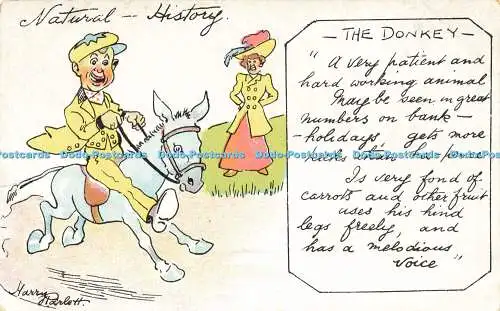 Natural — History.
— THE DONKEY —
"A very patient and
hard working animal
May be seen in great
numbers on bank —
— holidays, gets more
Is very fond of
carrots and other fruit
uses his hind
legs freely, and
has a melodious
voice"
Harry Parlett.
Postcards Dodo-Postcards Dodo-Postcards Dodo-Postcards Dodo-Postcards